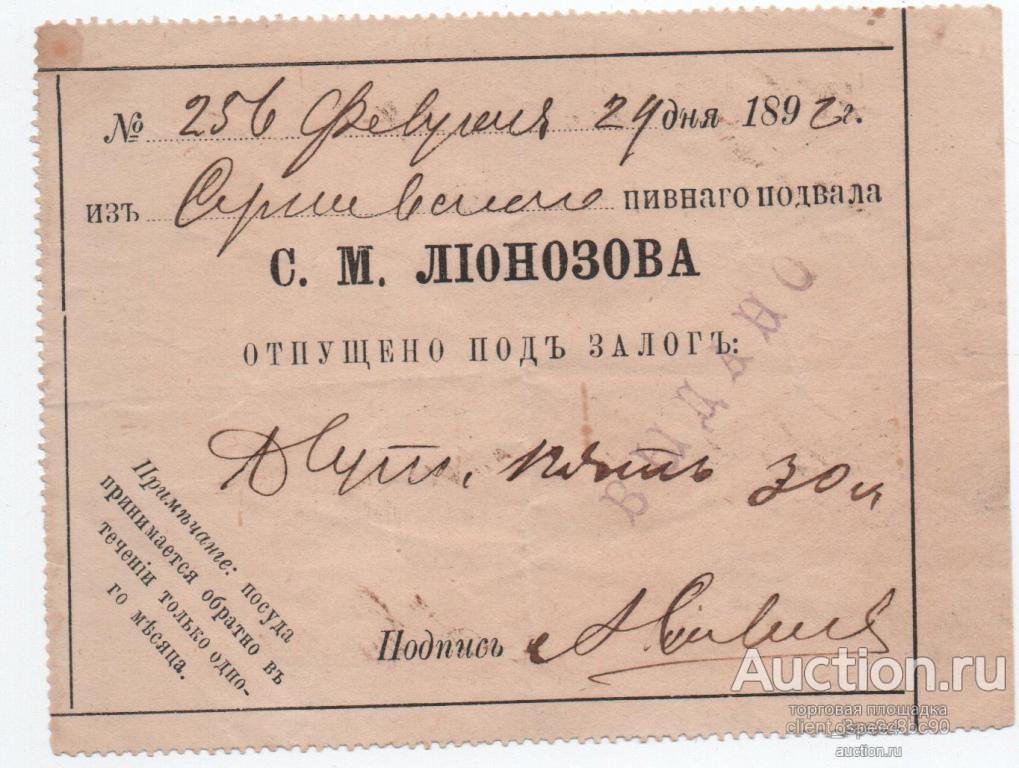 № 256 Февраля 29 дня 1892 г.
изъ пивнаго подвала
С. М. ЛІОНОЗОВА
ОТПУЩЕНО ПОДЪ ЗАЛОГЪ:
ВЫДАНО
пять 30 к
Примѣчаніе: посуда
принимается обратно въ
теченіи только одно-
го мѣсяца.
Подпись
Auction.ru
торговая площадка
auction.ru